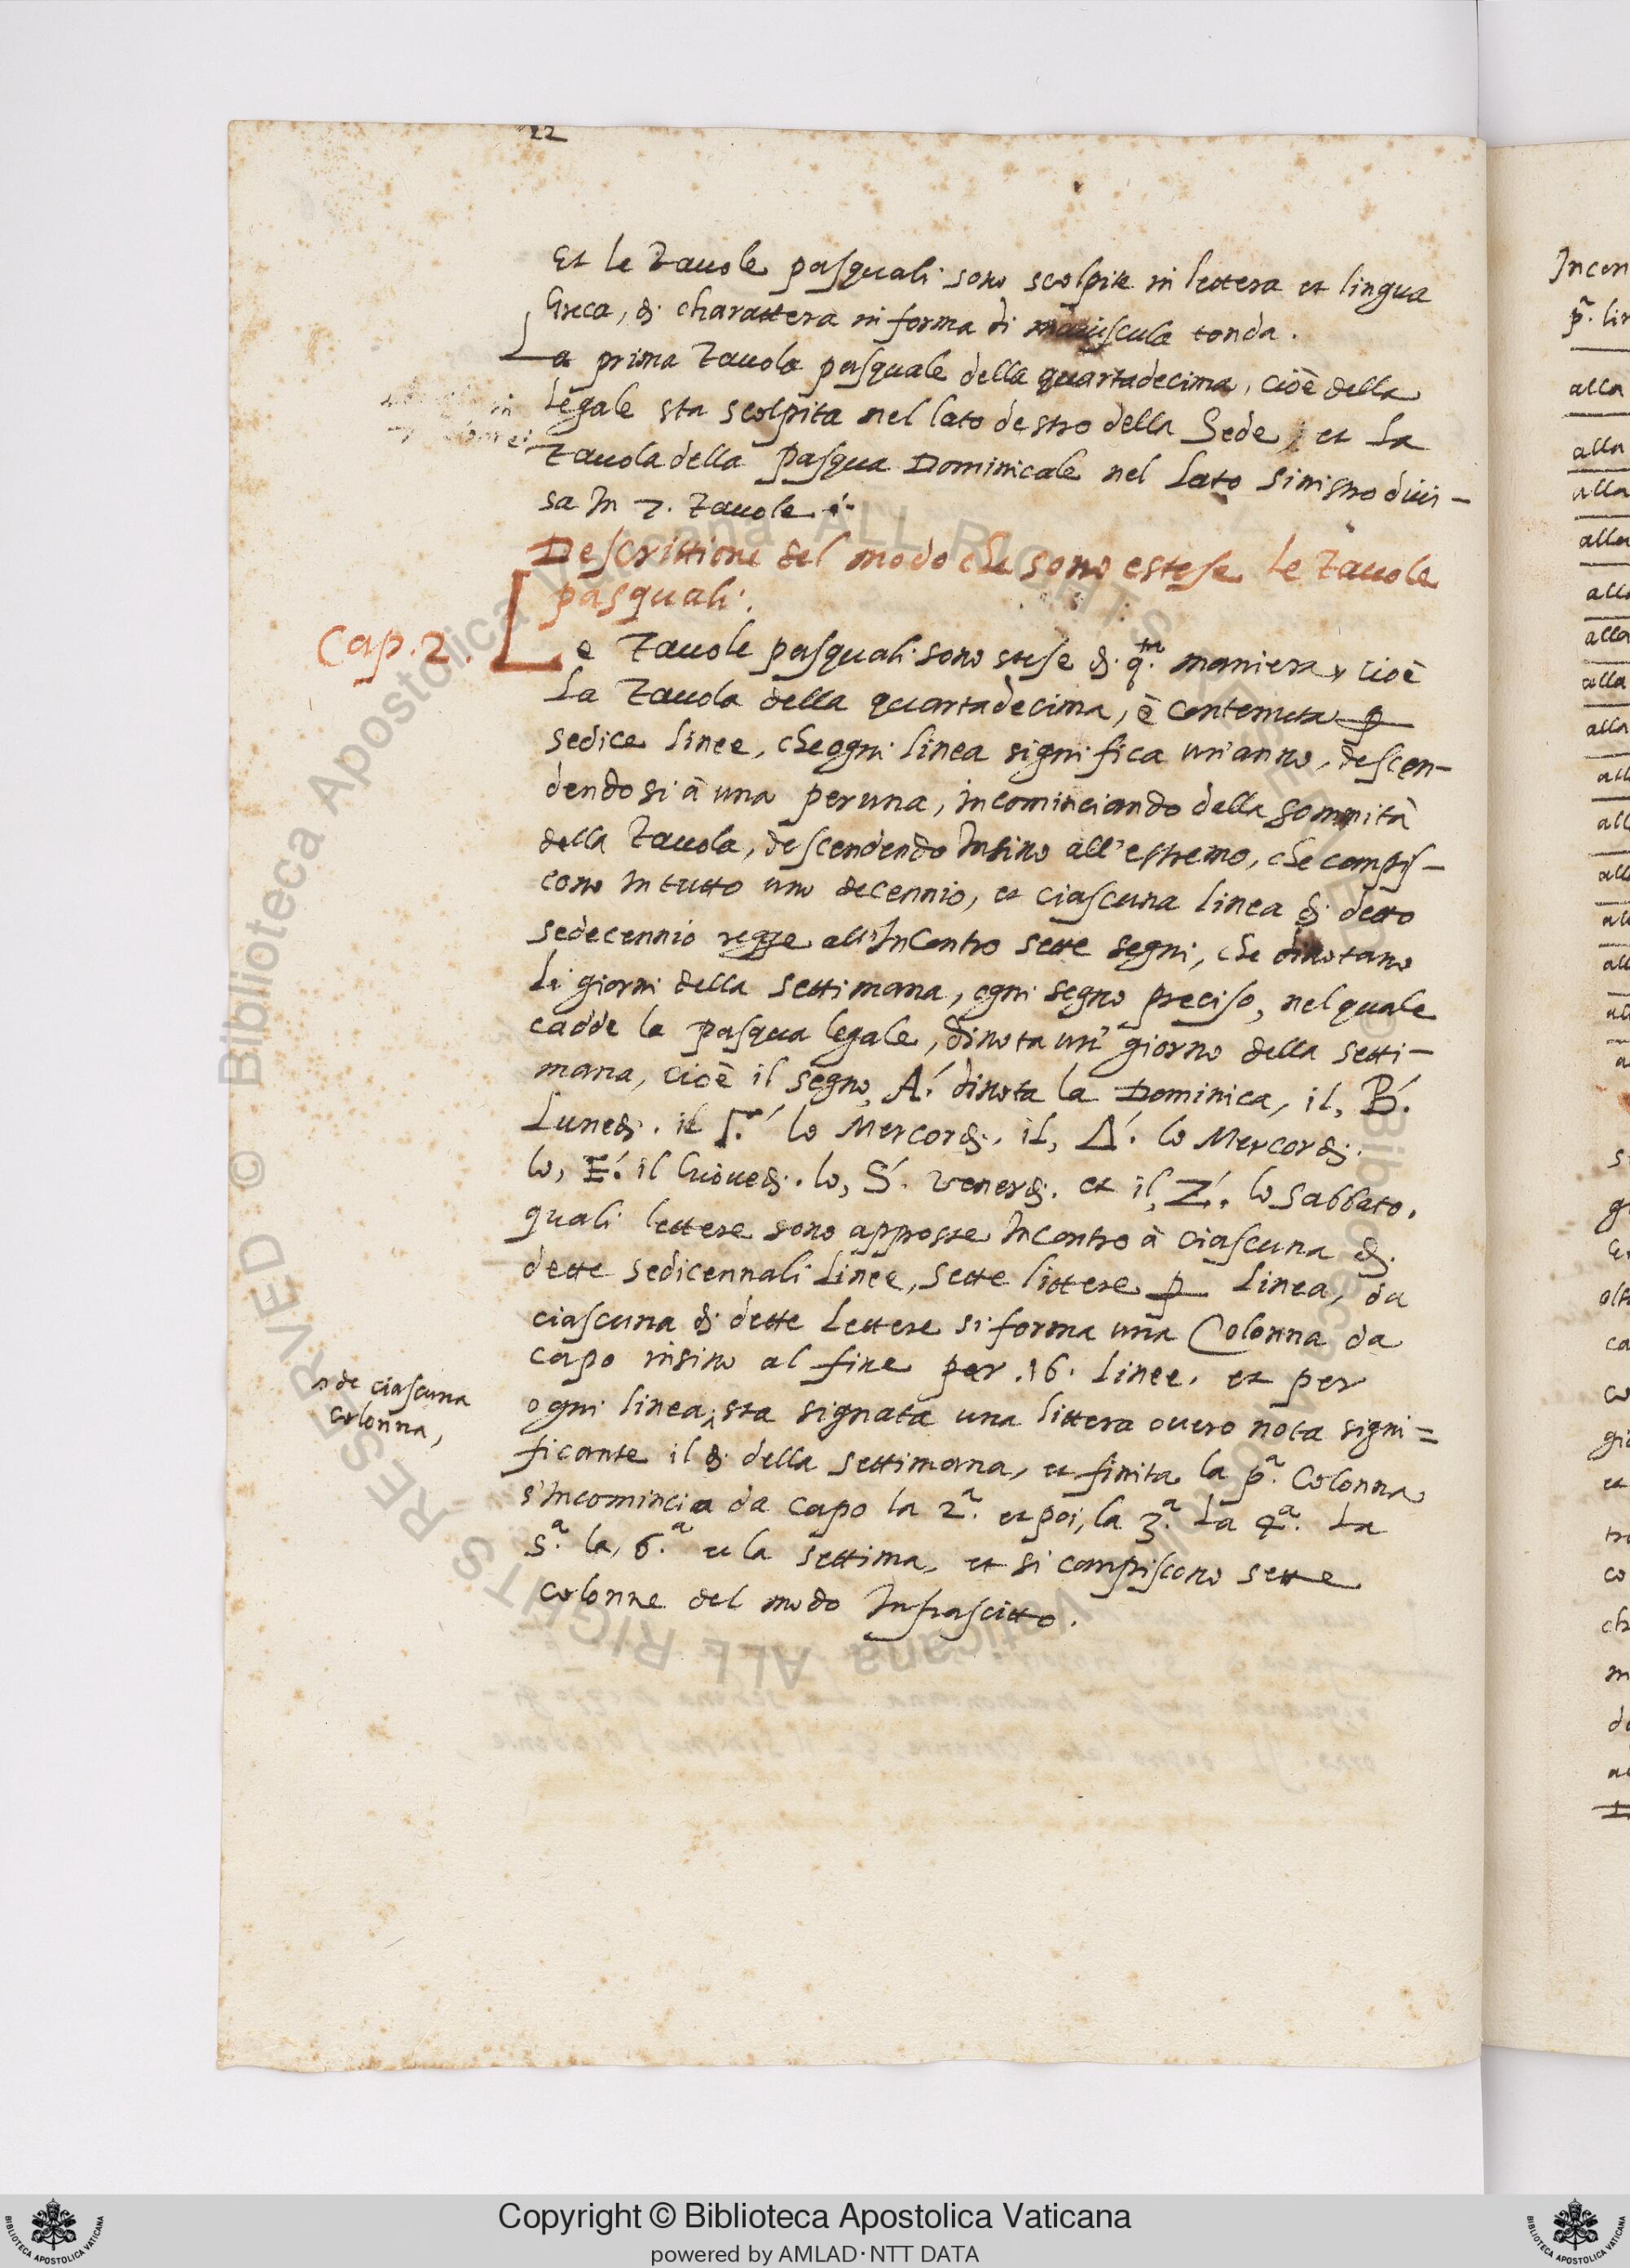 22
Et le Tavole pasquali sono scolpite in lettera et lingua
Greca, di charattera in forma di maiuscula tonda.
La prima Tavola pasquale della quartadecima, cioè della
legale sta scolpita nel lato destro della Sede, et la
Tavola della Pasqua Dominicale nel lato sinistro divi-
sa In 7. tavole
Descrittione del modo che sono estese le Tavole
pasquali.
Cap. 2.
Le Tavole pasquali sono stese di q.ta maniera, cioè
La Tavola della quartadecima, è contenuta p
sedice linee, che ogni linea significa un'anno, descen-
dendosi à una per una, incominciando della sommità
della Tavola, descendendo Insino all'estremo, che compis-
cono In tutto uno decennio, et ciascuna linea di detto
sedecennio regge all'Incontro sette segni, che dinotano
Li giorni della settimana, ogni segno preciso, nel quale
cadde la pasqua legale, dinota un' giorno della setti-
mana, cioè il segno, A.́ dinota la Dominica, il, B.́
Lunedi. il Γ.́ lo Mercordi. il, Δ.́ lo Mercordi.
lo, E.́ il Giovedi. lo, S.́ venerdi. et il, Z.́ lo sabbato.
quali lettere sono apposte Incontro à ciascuna di
dette sedicennali Linee, sette littere p linea, da
ciascuna di dette Lettere si forma una Colonna da
capo insino al fine per .16. Linee. et per
ogni linea ^ sta signata una littera overo nota signi=
de ciascuna
colonna,
ficante il di della settimana, et finita la p.ª Colonna
s'Incomincia da capo la 2.ª et poi, la 3.ª La 4.ª La
5.ª la, 6.ª et la settima, et si compiscono sette
colonne del modo Infrascitto.
Copyright © Biblioteca Apostolica Vaticana
powered by AMLAD·NTT DATA
BIBLIOTECA APOSTOLICA VATICANA
BIBLIOTECA APOSTOLICA VATICANA
© Biblioteca Apostolica Vaticana ALL RIGHTS RESERVED
© Biblioteca Apostolica Vaticana ALL RIGHTS RESERVED